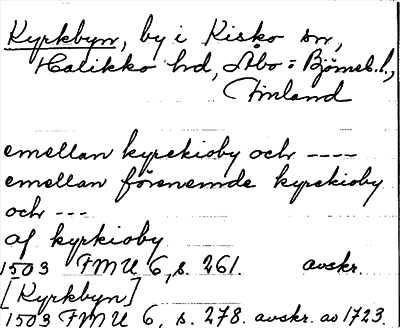 Kyrkbyn, by i Kisko sn,
Halikko hd, Åbo=Björneb.l.,
Finland
emellan kyrckioby och ----
emellan förenemde kyrckioby
och ---
af kyrkioby
1503 FMU 6, s. 261. avskr.
[Kyrkbyn]
1503 FMU 6, s. 278. avskr. av 1723.